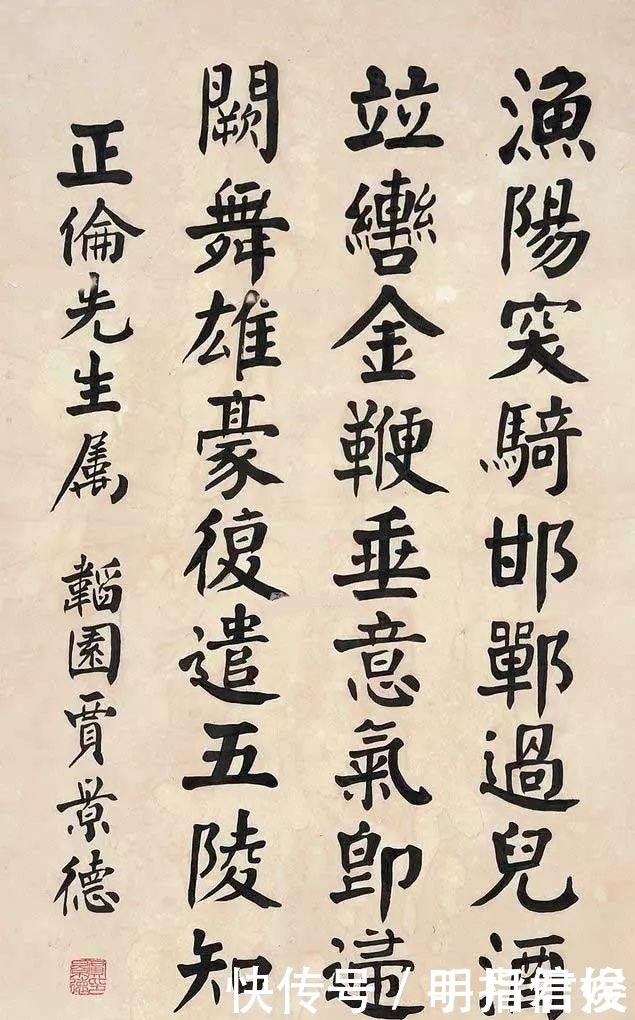 漁陽突騎邯鄲過兒酒
竝轡金鞭垂意氣即
闕舞雄豪復遣五陵知
正倫先生屬 韜園賈景德
快传号/